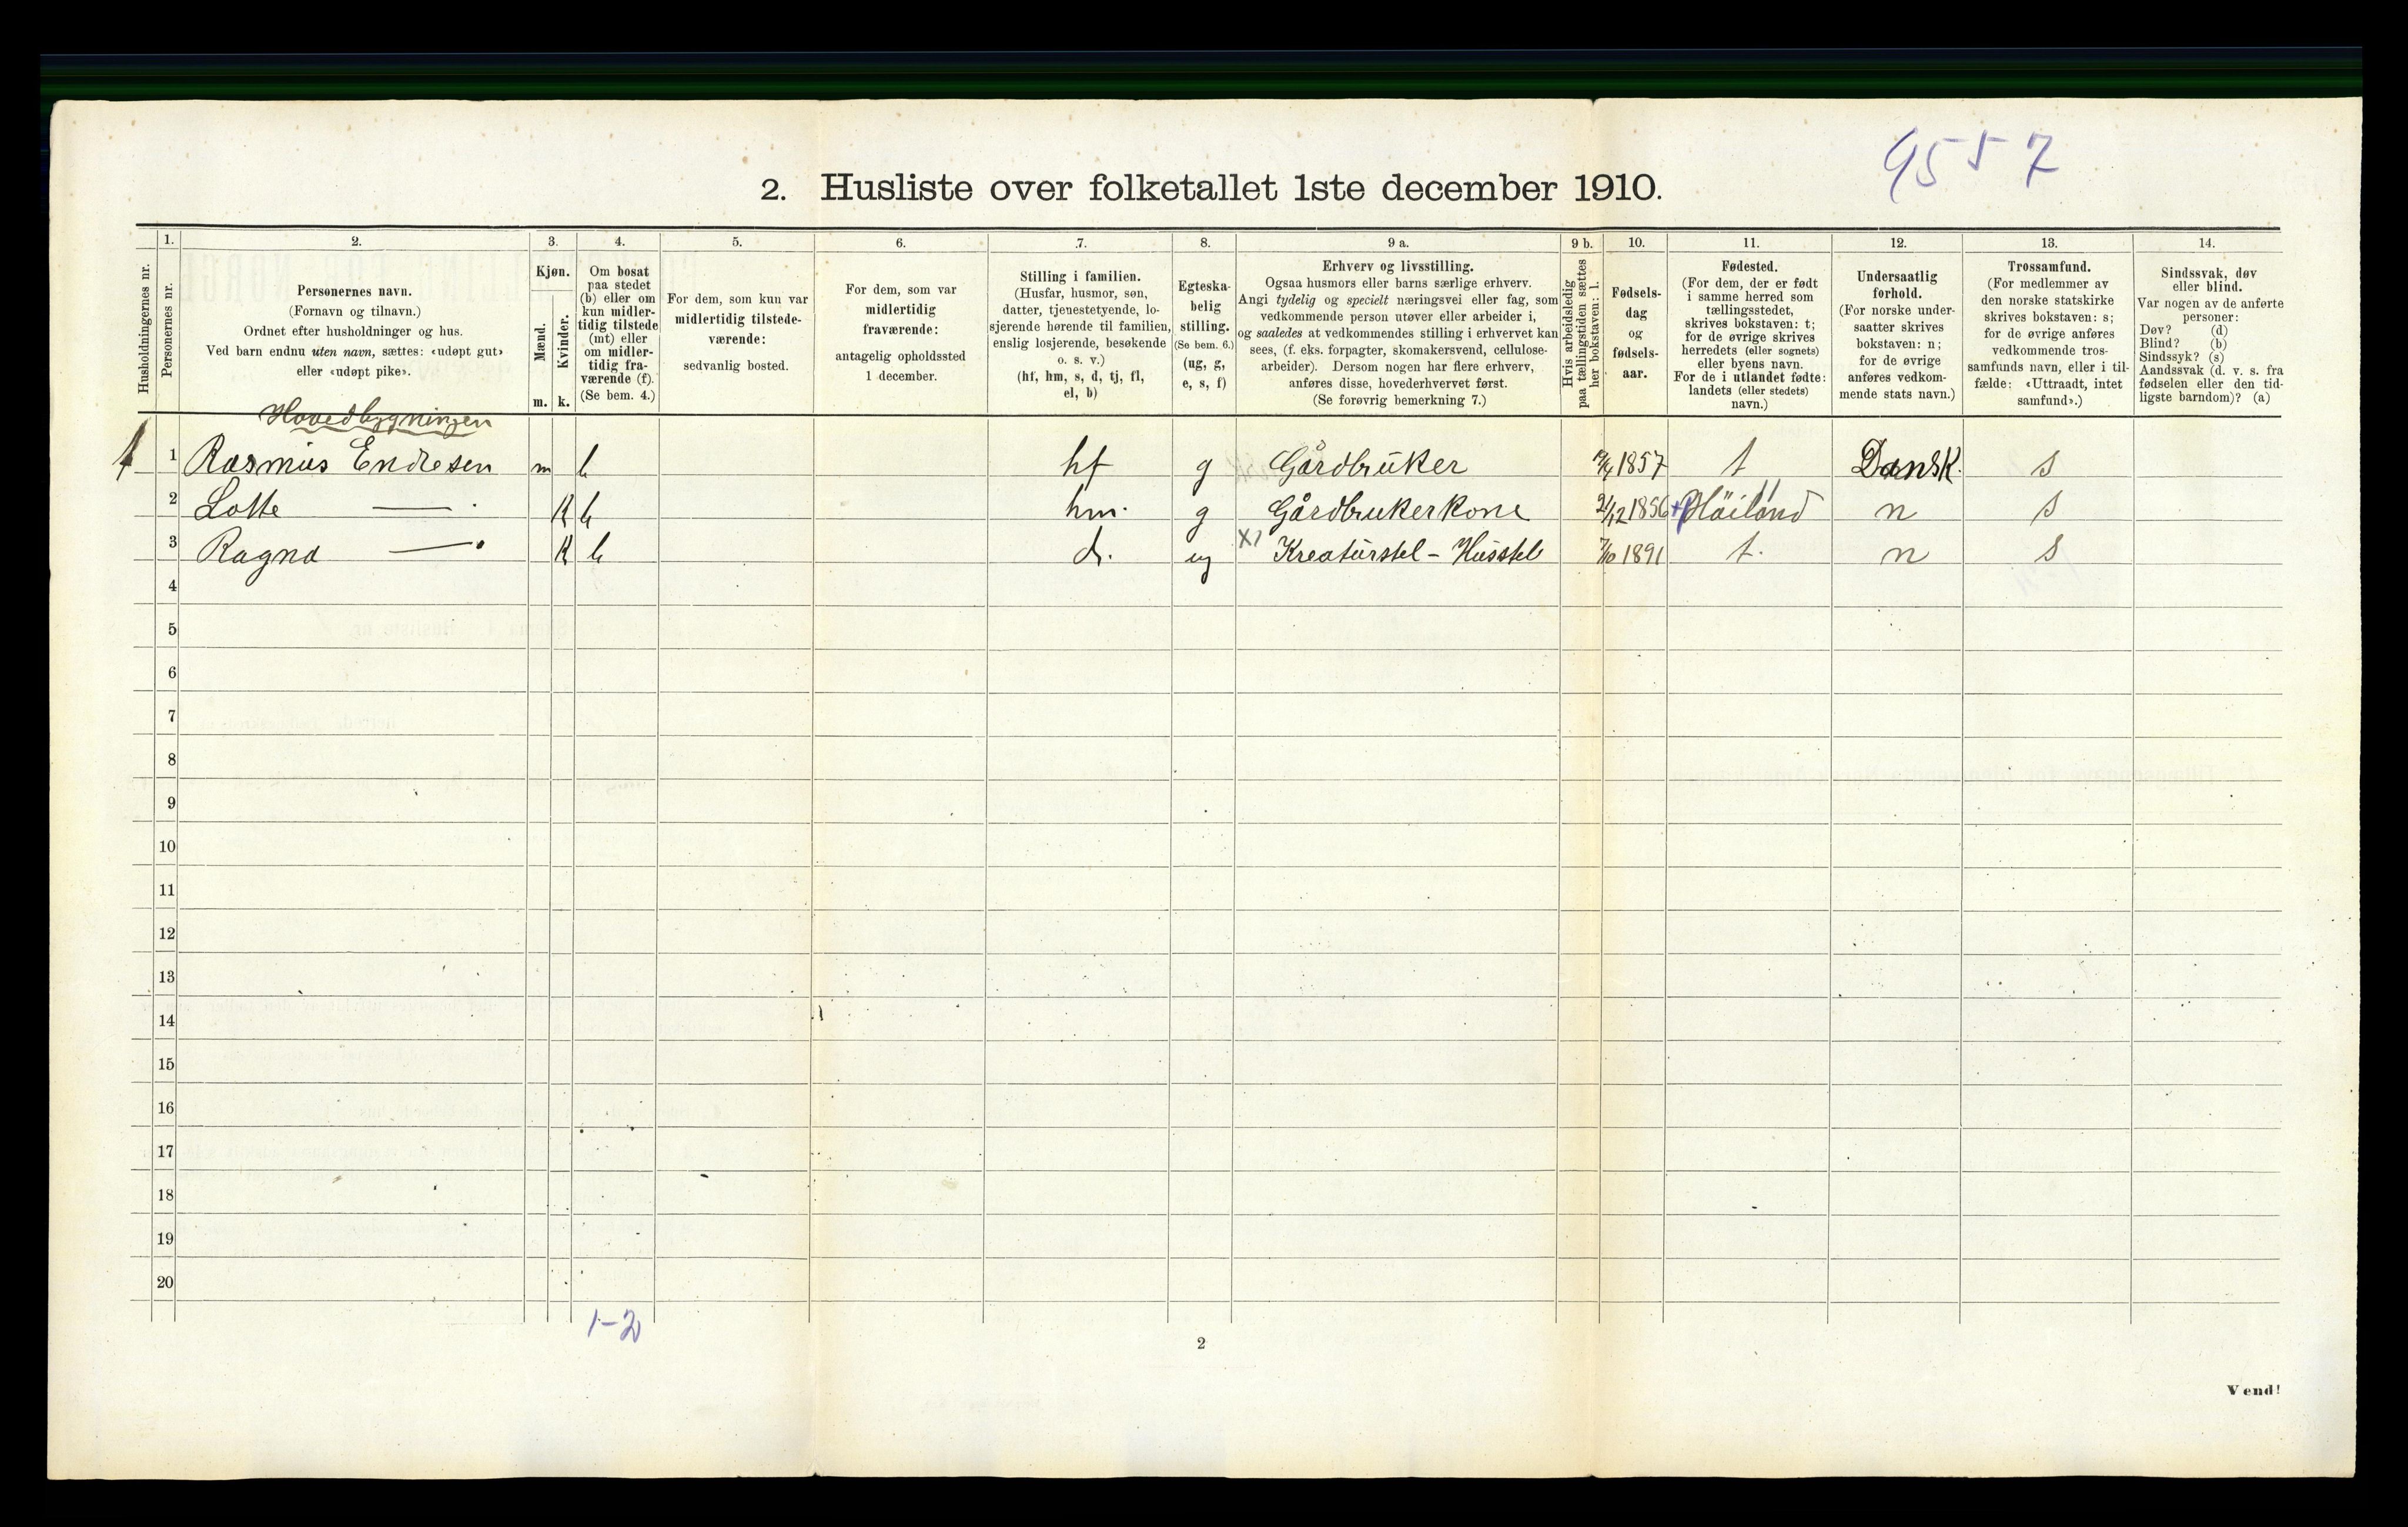 9557
2. Husliste over folketallet 1ste december 1910.
Husholdningernes nr.
1.
Personernes nr.
2.
Personernes navn.
(Fornavn og tilnavn.)
Ordnet efter husholdninger og hus.
Ved barn endnu uten navn, sættes: «udøpt gut»
eller «udøpt pike».
3.
Kjøn.
Mænd.
Kvinder.
m. k.
4.
Om bosat
paa stedet
(b) eller om
kun midler-
tidig tilstede
(mt) eller
om midler-
tidig fra-
værende (f).
(Se bem. 4.)
5.
For dem, som kun var
midlertidig tilstede-
værende:
sedvanlig bosted.
6.
For dem, som var
midlertidig
fraværende:
antagelig opholdssted
1 december.
7.
Stilling i familien.
(Husfar, husmor, søn,
datter, tjenestetyende, lo-
sjerende hørende til familien,
enslig losjerende, besøkende
o. s. v.)
(hf, hm, s, d, tj, fl,
el, b)
8.
Egteska-
belig
stilling.
(Se bem. 6.)
(ug, g,
e, s, f)
9 a.
Erhverv og livsstilling.
Ogsaa husmors eller barns særlige erhverv.
Angi tydelig og specielt næringsvei eller fag, som
vedkommende person utøver eller arbeider i,
og saaledes at vedkommendes stilling i erhvervet kan
sees, (f. eks. forpagter, skomakersvend, cellulose-
arbeider). Dersom nogen har flere erhverv,
anføres disse, hovederhvervet først.
(Se forøvrig bemerkning 7.)
9 b.
Hvis arbeidsledig
paa tællingstiden sættes
her bokstaven: l.
10.
Fødsels-
dag
og
fødsels-
aar.
11.
Fødested.
(For dem, der er født
i samme herred som
tællingsstedet,
skrives bokstaven: t;
for de øvrige skrives
herredets (eller sognets)
eller byens navn.
For de i utlandet fødte:
landets (eller stedets)
navn.)
12.
Undersaatlig
forhold.
(For norske under-
saatter skrives
bokstaven: n;
for de øvrige
anføres vedkom-
mende stats navn.)
13.
Trossamfund.
(For medlemmer av
den norske statskirke
skrives bokstaven: s;
for de øvrige anføres
vedkommende tros-
samfunds navn, eller i til-
fælde: «Uttraadt, intet
samfund».)
14.
Sindssvak, døv
eller blind.
Var nogen av de anførte
personer:
Døv? (d)
Blind? (b)
Sindssyk? (s)
Aandssvak (d. v. s. fra
fødselen eller den tid-
ligste barndom)? (a)
Hovedbygningen
1 1 Rasmus Endresen m b hf g Gårdbruker 1857 t Dansk. s
2 Lotte — k b hm. g Gårdbrukerkone 2/12 1856 Höiland n s
3 Ragna — k b d. ug Kreaturstel - Husstel 7/10 1891 t. n s
4
5
6
7
8
9
10
11
12
13
14
15
16
17
18
19
20
1-2
2
Vend!